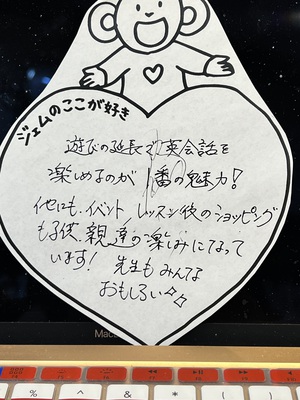 ジェムのここが好き
遊びの延長で英会話を
楽しめるのが1番の魅力!
他にも、イベント/レッスン後のショッピング
も子供、親達の楽しみになって
います! 先生もみんな
おもしろい
Mac
%
^
&
*
(
)